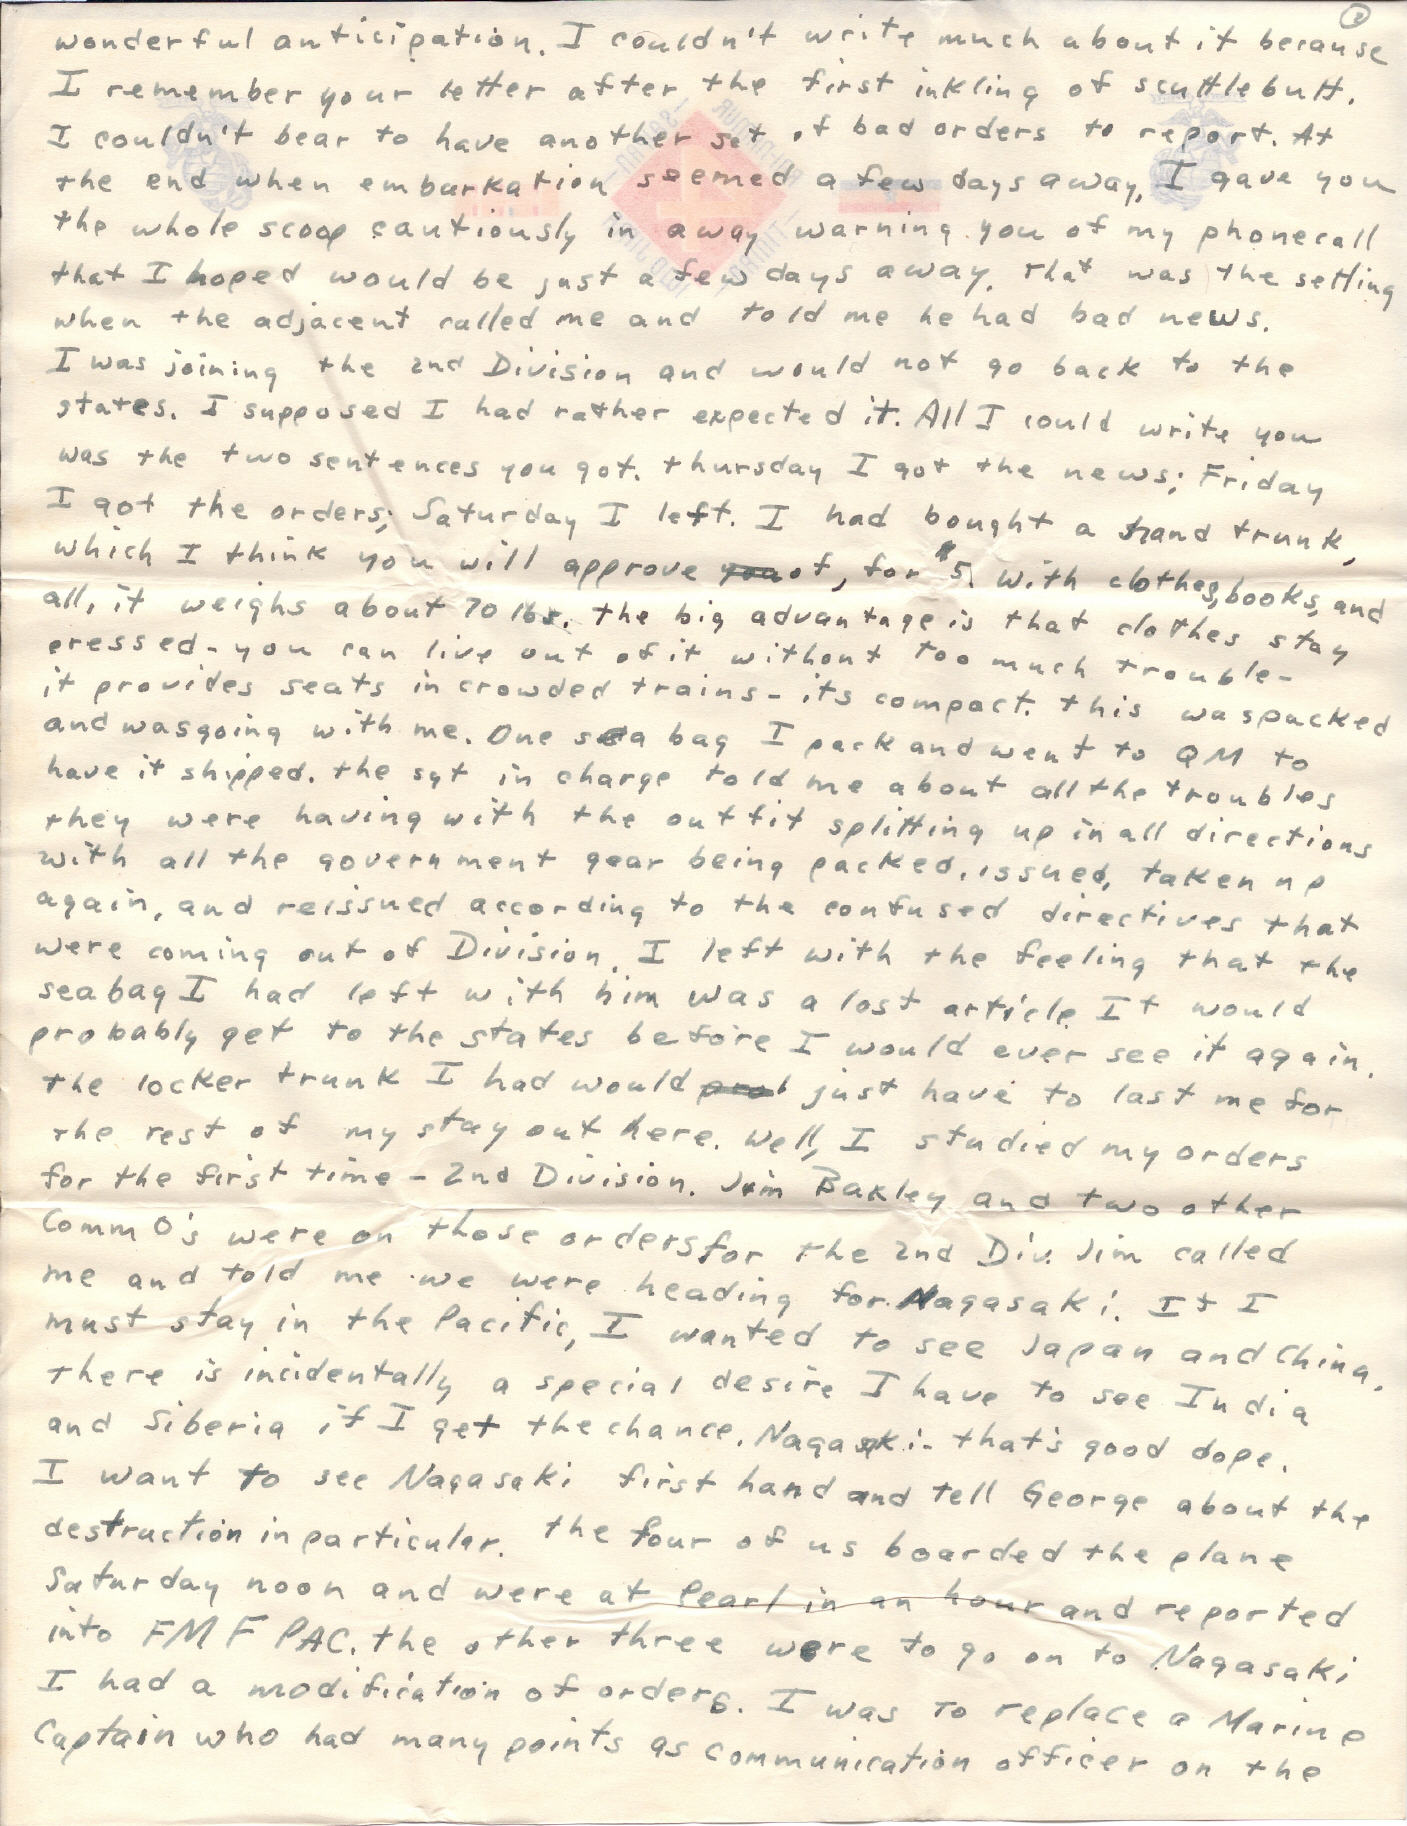 2
wonderful anticipation. I couldn't write much about it because
I remember your letter after the first inkling of scuttlebutt.
I couldn't bear to have another set of bad orders to report. At
the end when embarkation seemed a few days away, I gave you
the whole scoop cautiously in a way warning you of my phonecall
that I hoped would be just a few days away. That was the setting
when the adjacent called me and told me he had bad news.
I was joining the 2nd Division and would not go back to the
states. I supposed I had rather expected it. All I could write you
was the two sentences you got. Thursday I got the news; Friday
I got the orders; Saturday I left. I had bought a hand trunk,
which I think you will approve you of, for $5. With clothes, books, and
all, it weighs about 70 lbs. The big advantage is that clothes stay
pressed - you can live out of it without too much trouble -
it provides seats in crowded trains - its compact. This was packed
and was going with me. One sea bag I pack and went to QM to
have it shipped. The sgt in charge told me about all the troubles
they were having with the outfit splitting up in all directions
with all the government gear being packed, issued, taken up
again, and reissued according to the confused directives that
were coming out of Division. I left with the feeling that the
seabag I had left with him was a lost article. It would
probably get to the states before I would ever see it again.
The locker trunk I had would prob just have to last me for
the rest of my stay out here. Well, I studied my orders
for the first time - 2nd Division. Jim Bakley and two other
Comm O's were on those orders for the 2nd Div. Jim called
me and told me we were heading for Nagasaki. If I
must stay in the Pacific, I wanted to see Japan and China.
There is incidentally a special desire I have to see India
and Siberia if I get the chance. Nagasaki - that's good dope.
I want to see Nagasaki first hand and tell George about the
destruction in particular. The four of us boarded the plane
Saturday noon and were at Pearl in an hour and reported
into FMF PAC. The other three were to go on to Nagasaki
I had a modification of orders. I was to replace a Marine
Captain who had many points as communication officer on the